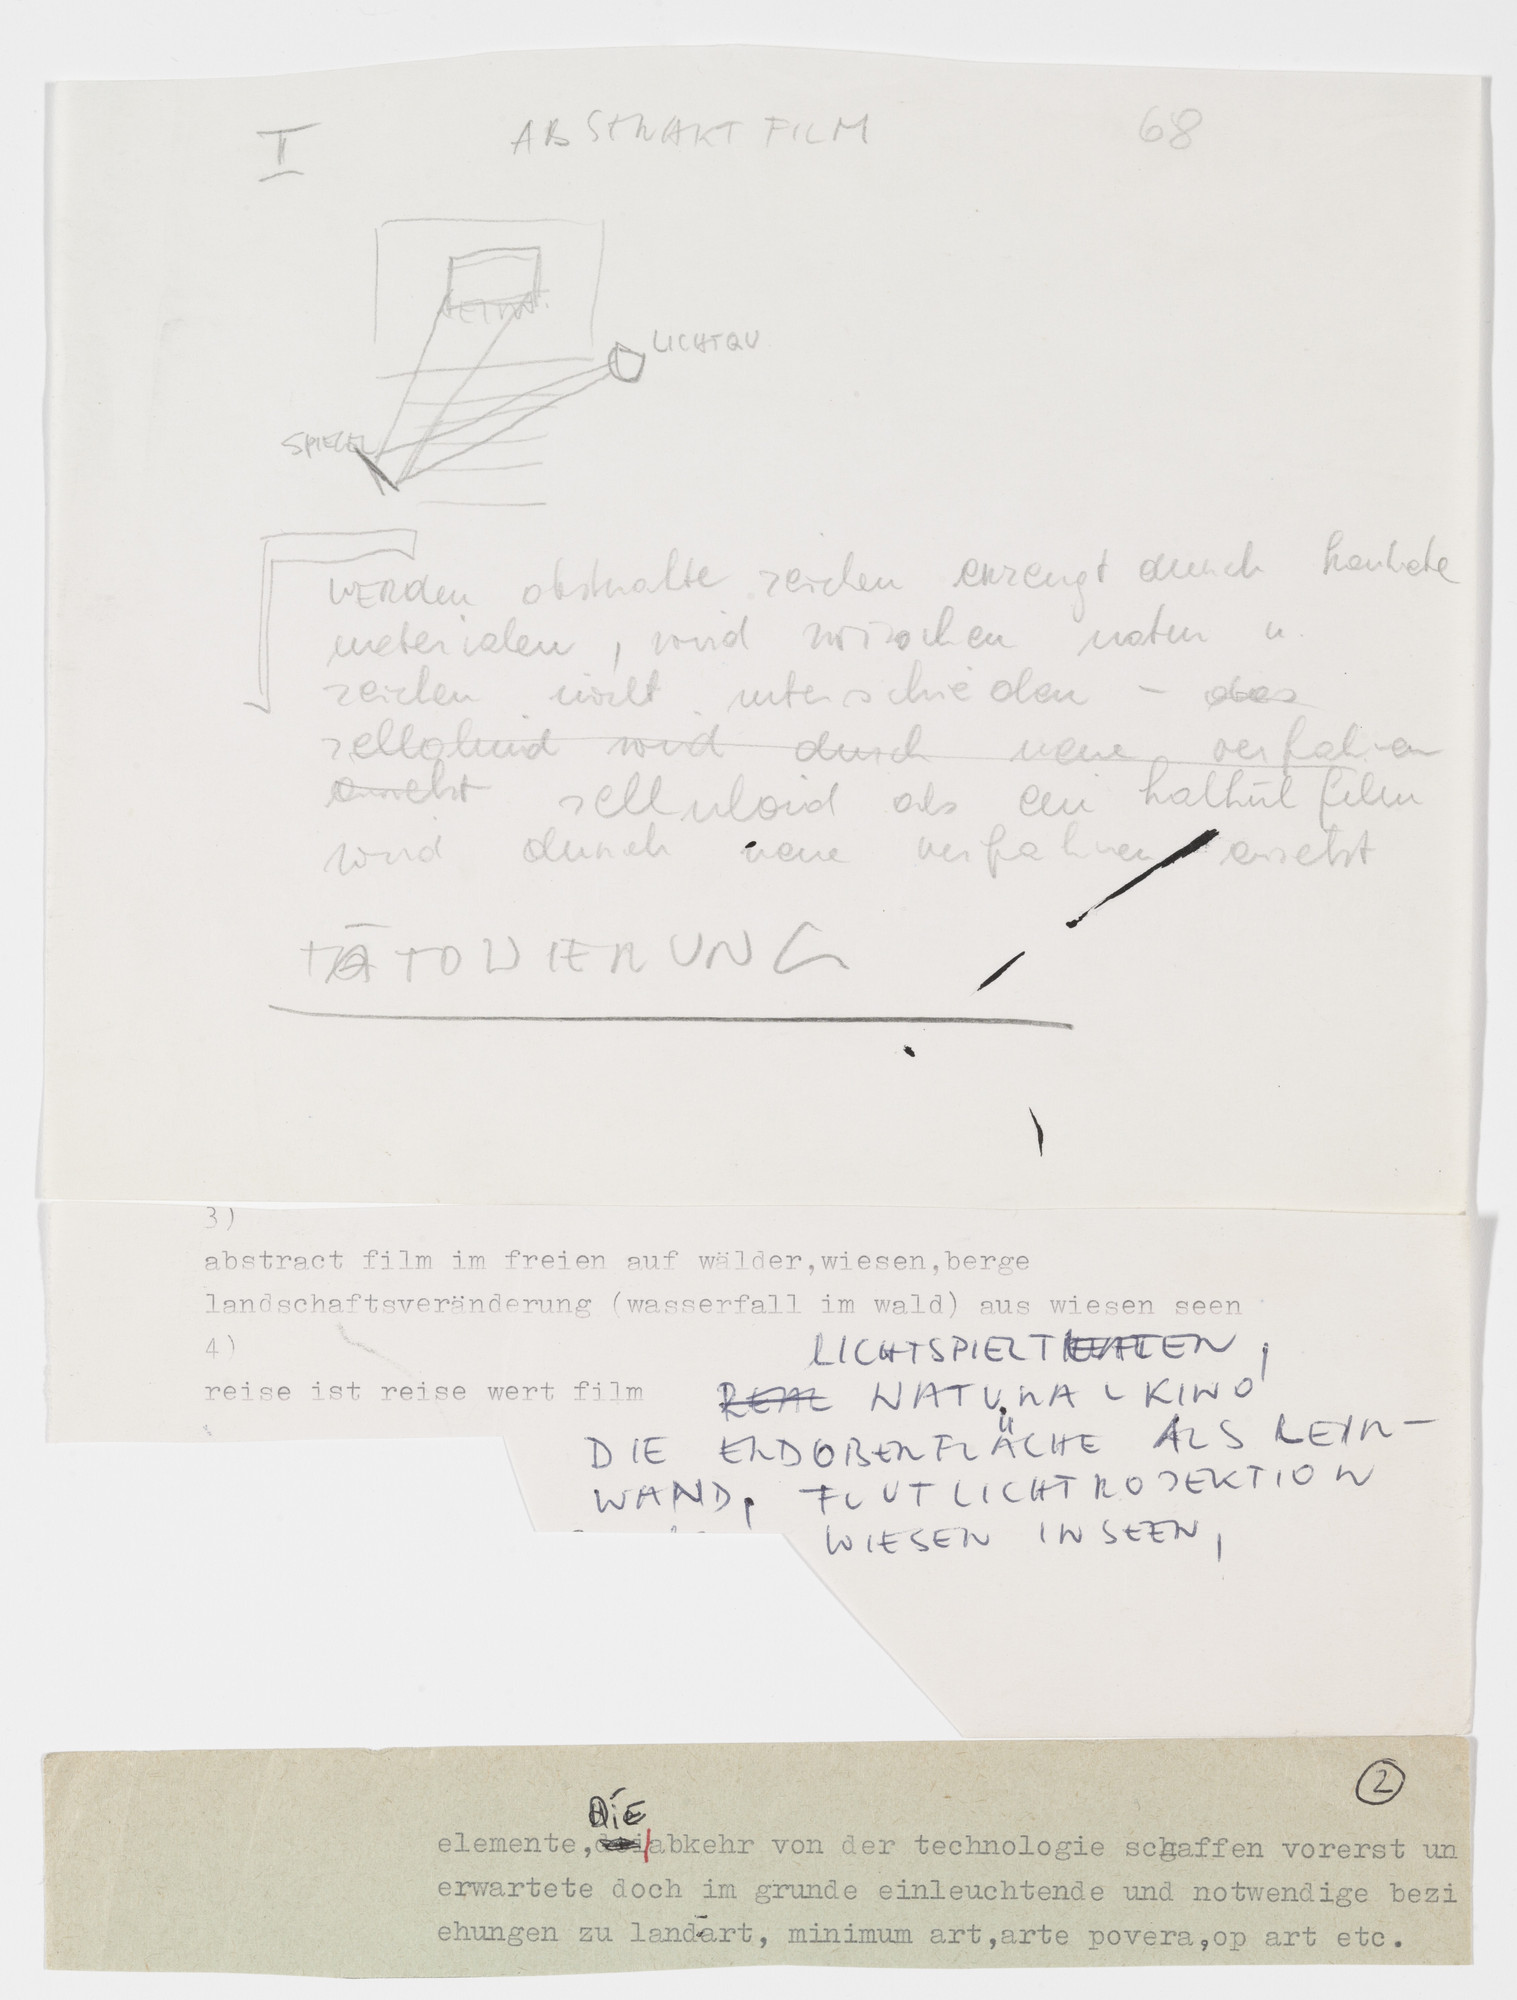 I ABSTRAKT FILM 68
LICHTQU
SPIEGEL
WERden abstrakte zeichen erzeugt durch konkrete
materialen, wird zwischen natur u.
zeichen nicht unterschieden – das
zelloluid wird durch neue verfahren
ersetzt zelluloid als ein film
wird durch neue verfahren ersetzt
TÄTOWIERUNG
3)
abstract film im freien auf wälder,wiesen,berge
landschaftsveränderung (wasserfall im wald) aus wiesen seen
4)
LICHTSPIELTHEATEN,
reise ist reise wert film
REAL NATURALKINO
DIE ERDOBERFLÄCHE ALS LEIN-
WAND, FLUTLICHTROJEKTION
WIESEN IN SEEN,
2
DiE
elemente, abkehr von der technologie schaffen vorerst un
erwartete doch im grunde einleuchtende und notwendige bezi
ehungen zu land-art, minimum art,arte povera,op art etc.